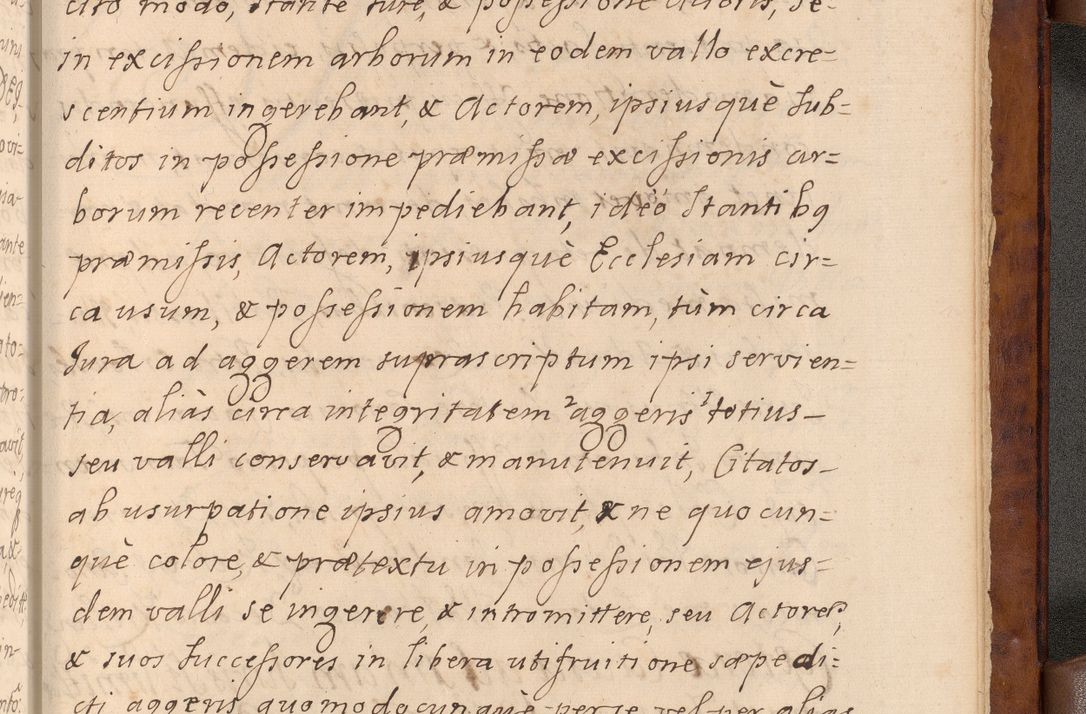 cito modo, stante Jure, & possessione Actoris, se-
in excissionem arborum in eodem vallo excre=
scentium ingerebant, & Actorem, ipsiusquè sub=
ditos in possessione præmissæ excissionis ar=
borum recenter impediebant, ideò stantibq
præmissis, Actorem, ipsiusquè Ecclesiam cir=
ca usum, & possessionem habitam, tùm circa
Jura ad aggerem suprascriptum ipsi servien=
tia, aliàs circa integritatem ²aggeris ¹totius-
seu valli conservavit, & manutenuit, Citatos-
ab usurpatione ipsius amovit, & ne quocun=
què colore, & prætextu in possessionem ejus=
dem valli se ingerere, & intromittere, seu Actorem,
& suos successores in libera utifruitione sæpedi=
cti aggeris quomodocunquè per se vel per alias